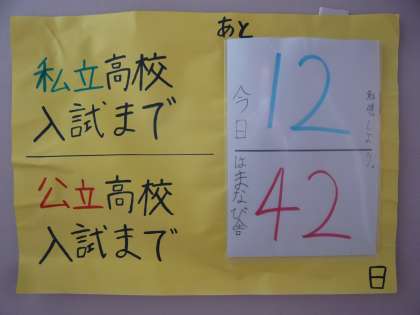 あと
私立高校
入試まで
12
公立高校
入試まで
42
日
今日
はまなび舎
勉強しよう。